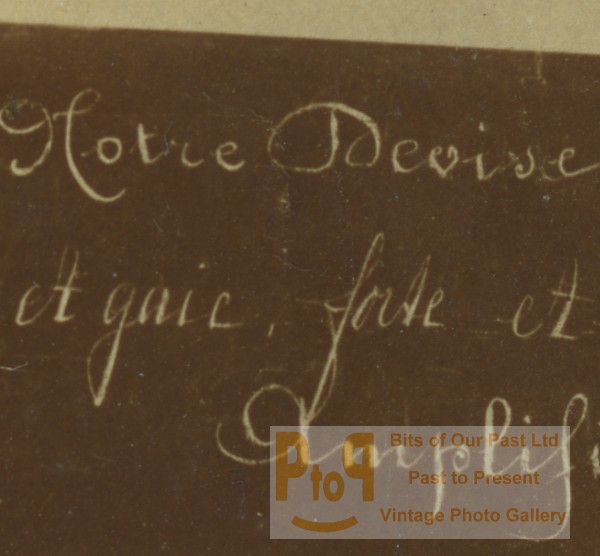 Notre Devise
et gaie, forte et
Amplifi
PtoP
Bits of Our Past Ltd
Past to Present
Vintage Photo Gallery